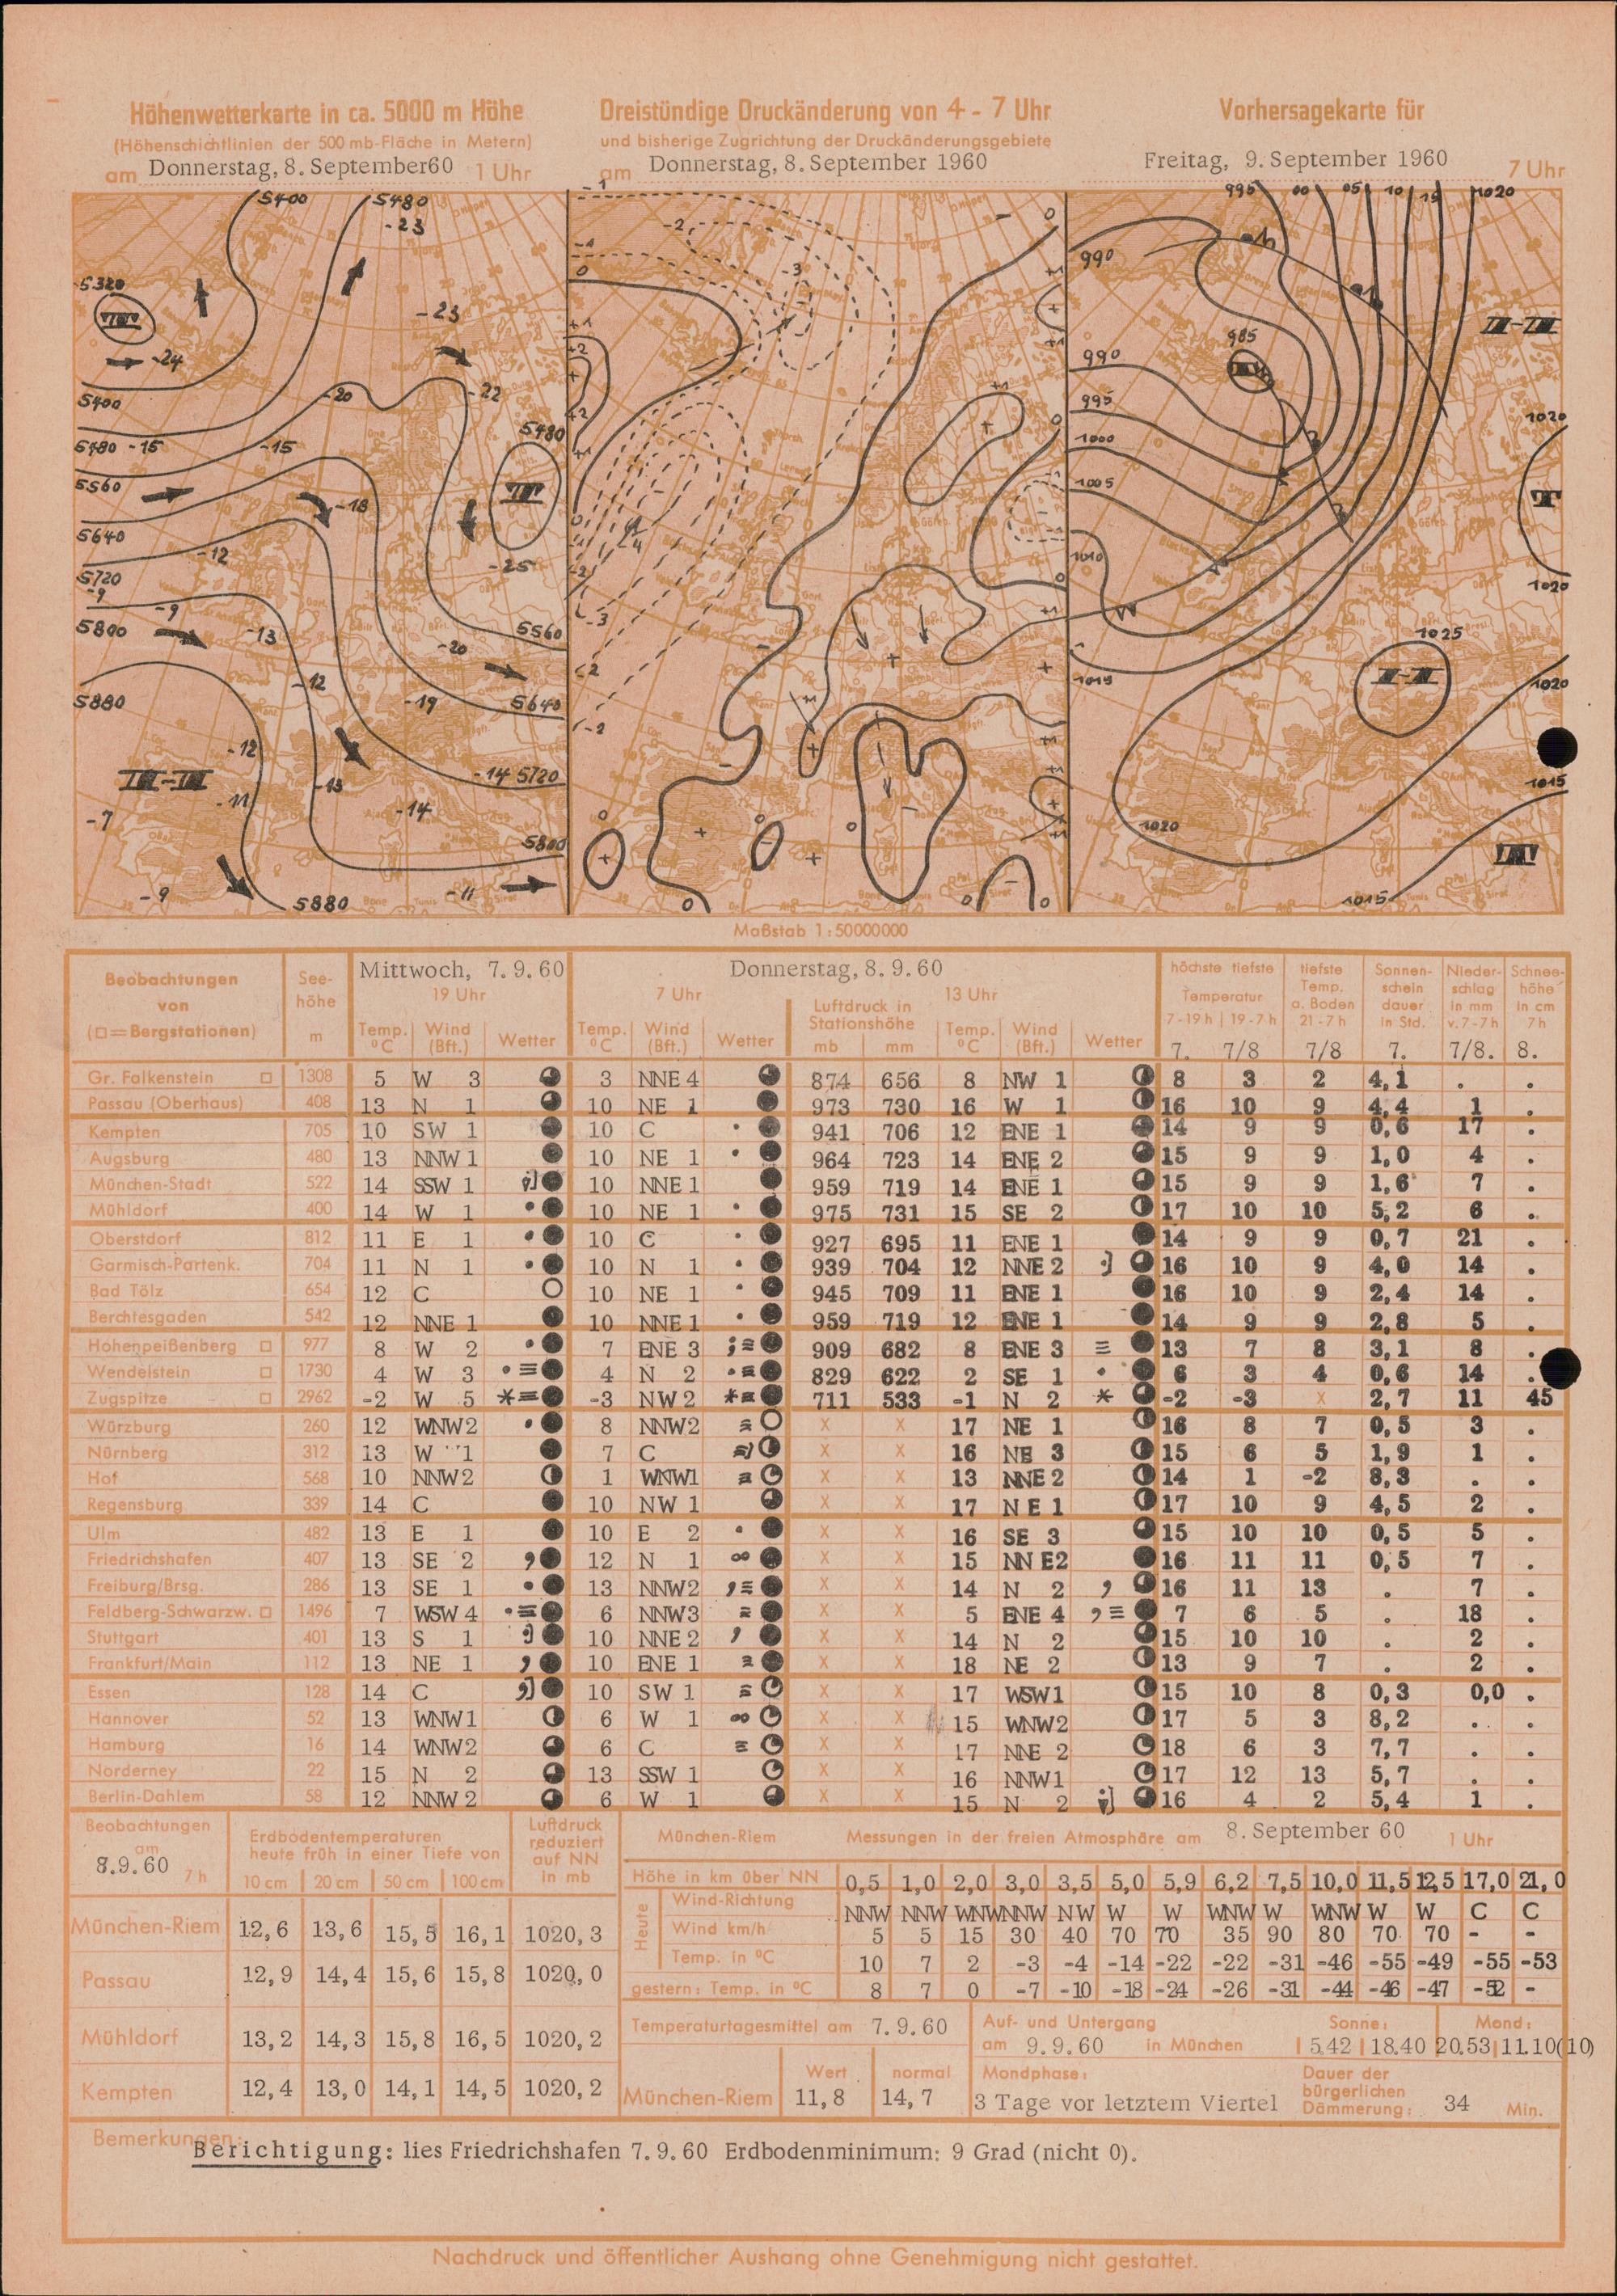 Höhenwetterkarte in ca. 5000 m Höhe
(Höhenschichtlinien der 500 mb-Fläche in Metern)
am Donnerstag, 8. September60 1 Uhr
Dreistündige Druckänderung von 4 - 7 Uhr
und bisherige Zugrichtung der Druckänderungsgebiete
am Donnerstag, 8. September 1960
Vorhersagekarte für
Freitag, 9. September 1960 7 Uhr
5400 5480
-23
5320
-23
-24
5400
-20
-22
5480 -15 -15
5480
5560
-18
5640
-12
-25
5720
-9
-9
5800
-13
5560
-20
-12
5880
-19
5640
-12
-14 5720
-13
-11
-14
-7
5800
-9
-11
5880
-1
0
-2
-1
0
-3
+1
+2
+1
0
-4
-3
-2
-2
0
0
0
0
995 00 05 10 15 1020
990
985
990
995
1000
1005
1010
1015
1020
T
1020
1025
1020
1015
1020
1015
W
Maßstab 1:50000000
Beobachtungen von (□=Bergstationen)
See-höhe m
Mittwoch, 7.9.60
19 Uhr
Temp. °C Wind (Bft.) Wetter
Donnerstag, 8.9.60
7 Uhr
Temp. °C Wind (Bft.) Wetter
Luftdruck in Stationshöhe
mb mm
13 Uhr
Temp. °C Wind (Bft.) Wetter
höchste tiefste Temperatur
7-19h | 19-7h
7. 7/8
tiefste Temp. a. Boden 21-7h
7/8
Sonnenschein dauer in Std.
7.
Niederschlag in mm v. 7-7h
7/8.
Schneehöhe in cm 7h
8.
Gr. Falkenstein □ 1308 5 W 3 3 NNE 4 874 656 8 NW 1 8 3 2 4,1 . .
Passau (Oberhaus) 408 13 N 1 10 NE 1 973 730 16 W 1 16 10 9 4,4 1 .
Kempten 705 10 SW 1 10 C 941 706 12 ENE 1 14 9 9 0,6 17 .
Augsburg 480 13 NNW 1 10 NE 1 964 723 14 ENE 2 15 9 9 1,0 4 .
München-Stadt 522 14 SSW 1 10 NNE 1 959 719 14 ENE 1 15 9 9 1,6 7 .
Mühldorf 400 14 W 1 10 NE 1 975 731 15 SE 2 17 10 10 5,2 6 .
Oberstdorf 812 11 E 1 10 C 927 695 11 ENE 1 14 9 9 0,7 21 .
Garmisch-Partenk. 704 11 N 1 10 N 1 939 704 12 NNE 2 16 10 9 4,0 14 .
Bad Tölz 654 12 C 10 NE 1 945 709 11 ENE 1 16 10 9 2,4 14 .
Berchtesgaden 542 12 NNE 1 10 NNE 1 959 719 12 ENE 1 14 9 9 2,8 5 .
Hohenpeißenberg □ 977 8 W 2 7 ENE 3 909 682 8 ENE 3 13 7 8 3,1 8 .
Wendelstein □ 1730 4 W 3 4 N 2 829 622 2 SE 1 6 3 4 0,6 14 .
Zugspitze □ 2962 -2 W 5 -3 NW 2 711 533 -1 N 2 -2 -3 x 2,7 11 45
Würzburg 260 12 WNW 2 8 NNW 2 x x 17 NE 1 16 8 7 0,5 3 .
Nürnberg 312 13 W 1 7 C x x 16 NE 3 15 6 5 1,9 1 .
Hof 568 10 NNW 2 1 WNW 1 x x 13 NNE 2 14 1 -2 8,3 . .
Regensburg 339 14 C 10 NW 1 x x 17 NE 1 17 10 9 4,5 2 .
Ulm 482 13 E 1 10 E 2 x x 16 SE 3 15 10 10 0,5 5 .
Friedrichshafen 407 13 SE 2 12 N 1 x x 15 NNE 2 16 11 11 0,5 7 .
Freiburg/Brsg. 286 13 SE 1 13 NNW 2 x x 14 N 2 16 11 13 . 7 .
Feldberg-Schwarzw. □ 1496 7 WSW 4 6 NNW 3 x x 5 ENE 4 7 6 5 . 18 .
Stuttgart 401 13 S 1 10 NNE 2 x x 14 N 2 15 10 10 . 2 .
Frankfurt/Main 112 13 NE 1 10 ENE 1 x x 18 NE 2 13 9 7 . 2 .
Essen 128 14 C 10 SW 1 x x 17 WSW 1 15 10 8 0,3 0,0 .
Hannover 52 13 WNW 1 6 W 1 x x 15 WNW 2 17 5 3 8,2 . .
Hamburg 16 14 WNW 2 6 C x x 17 NNE 2 18 6 3 7,7 . .
Norderney 22 15 N 2 13 SSW 1 x x 16 NNW 1 17 12 13 5,7 . .
Berlin-Dahlem 58 12 NNW 2 6 W 1 x x 15 N 2 16 4 2 5,4 1 .
Beobachtungen am 8.9.60 7 h
Erdbodentemperaturen heute früh in einer Tiefe von
10 cm | 20 cm | 50 cm | 100 cm
Luftdruck reduziert auf NN in mb
München-Riem 12,6 13,6 15,5 16,1 1020,3
Passau 12,9 14,4 15,6 15,8 1020,0
Mühldorf 13,2 14,3 15,8 16,5 1020,2
Kempten 12,4 13,0 14,1 14,5 1020,2
München-Riem Messungen in der freien Atmosphäre am 8. September 60 1 Uhr
Höhe in km über NN 0,5 1,0 2,0 3,0 3,5 5,0 5,9 6,2 7,5 10,0 11,5 12,5 17,0 21,0
Heute
Wind-Richtung NNW NNW WNW NNW NW W W WNW W WNW W W C C
Wind km/h 5 5 15 30 40 70 70 35 90 80 70 70 - -
Temp. in °C 10 7 2 -3 -4 -14 -22 -22 -31 -46 -55 -49 -55 -53
gestern: Temp. in °C 8 7 0 -7 -10 -18 -24 -26 -31 -44 -46 -47 -52 -
Temperaturtagesmittel am 7.9.60
Wert normal
München-Riem 11,8 14,7
Auf- und Untergang Sonne: Mond:
am 9.9.60 in München 5.42 | 18.40 20.53 | 11.10(10)
Mondphase:
3 Tage vor letztem Viertel
Dauer der bürgerlichen Dämmerung: 34 Min.
Bemerkungen:
Berichtigung: lies Friedrichshafen 7.9.60 Erdbodenminimum: 9 Grad (nicht 0).
Nachdruck und öffentlicher Aushang ohne Genehmigung nicht gestattet.